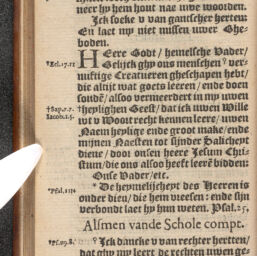 neer hy hem hout nae uwe woorden.
Ick soeke v van gantscher herten:
En laet my niet missen uwer Ghe-
boden.
HEere Godt / hemelsche Vader/
*Ecl.17.11 Ghelijck ghy ons menschen vernuftige Creatueren gheschapen hebt/
die altijt wat goets leeren/ ende doen
souden/ also vermeerdert in my uwen
*Sap.1.1. heylighen Geest/ dat ick uwen Wille
Iacob.1.5. wt v Woort recht kennen leere/ uwen
Naem heylige ende groot make/ ende
mijnen Naesten tot sijnder Salicheyt
diene/ door onsen heere Jesum Chri-
stum/ die ons also heeft leere bidden:
Onse Vader/etc.
*De heymelijcheyt des Heeren is
onder dien/ die hem vreesen: ende sijn
verbondt laet hy hun weten. Psal.25.
Alsmen vande Schole compt.
Ick dancke v van rechter herten/
dat ghy my leert de rechten uwer ge-